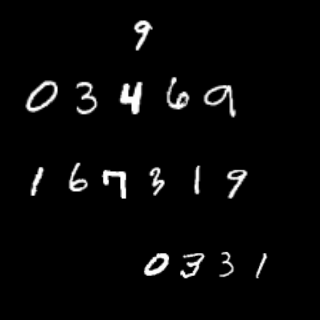 9
03469
167319
0331